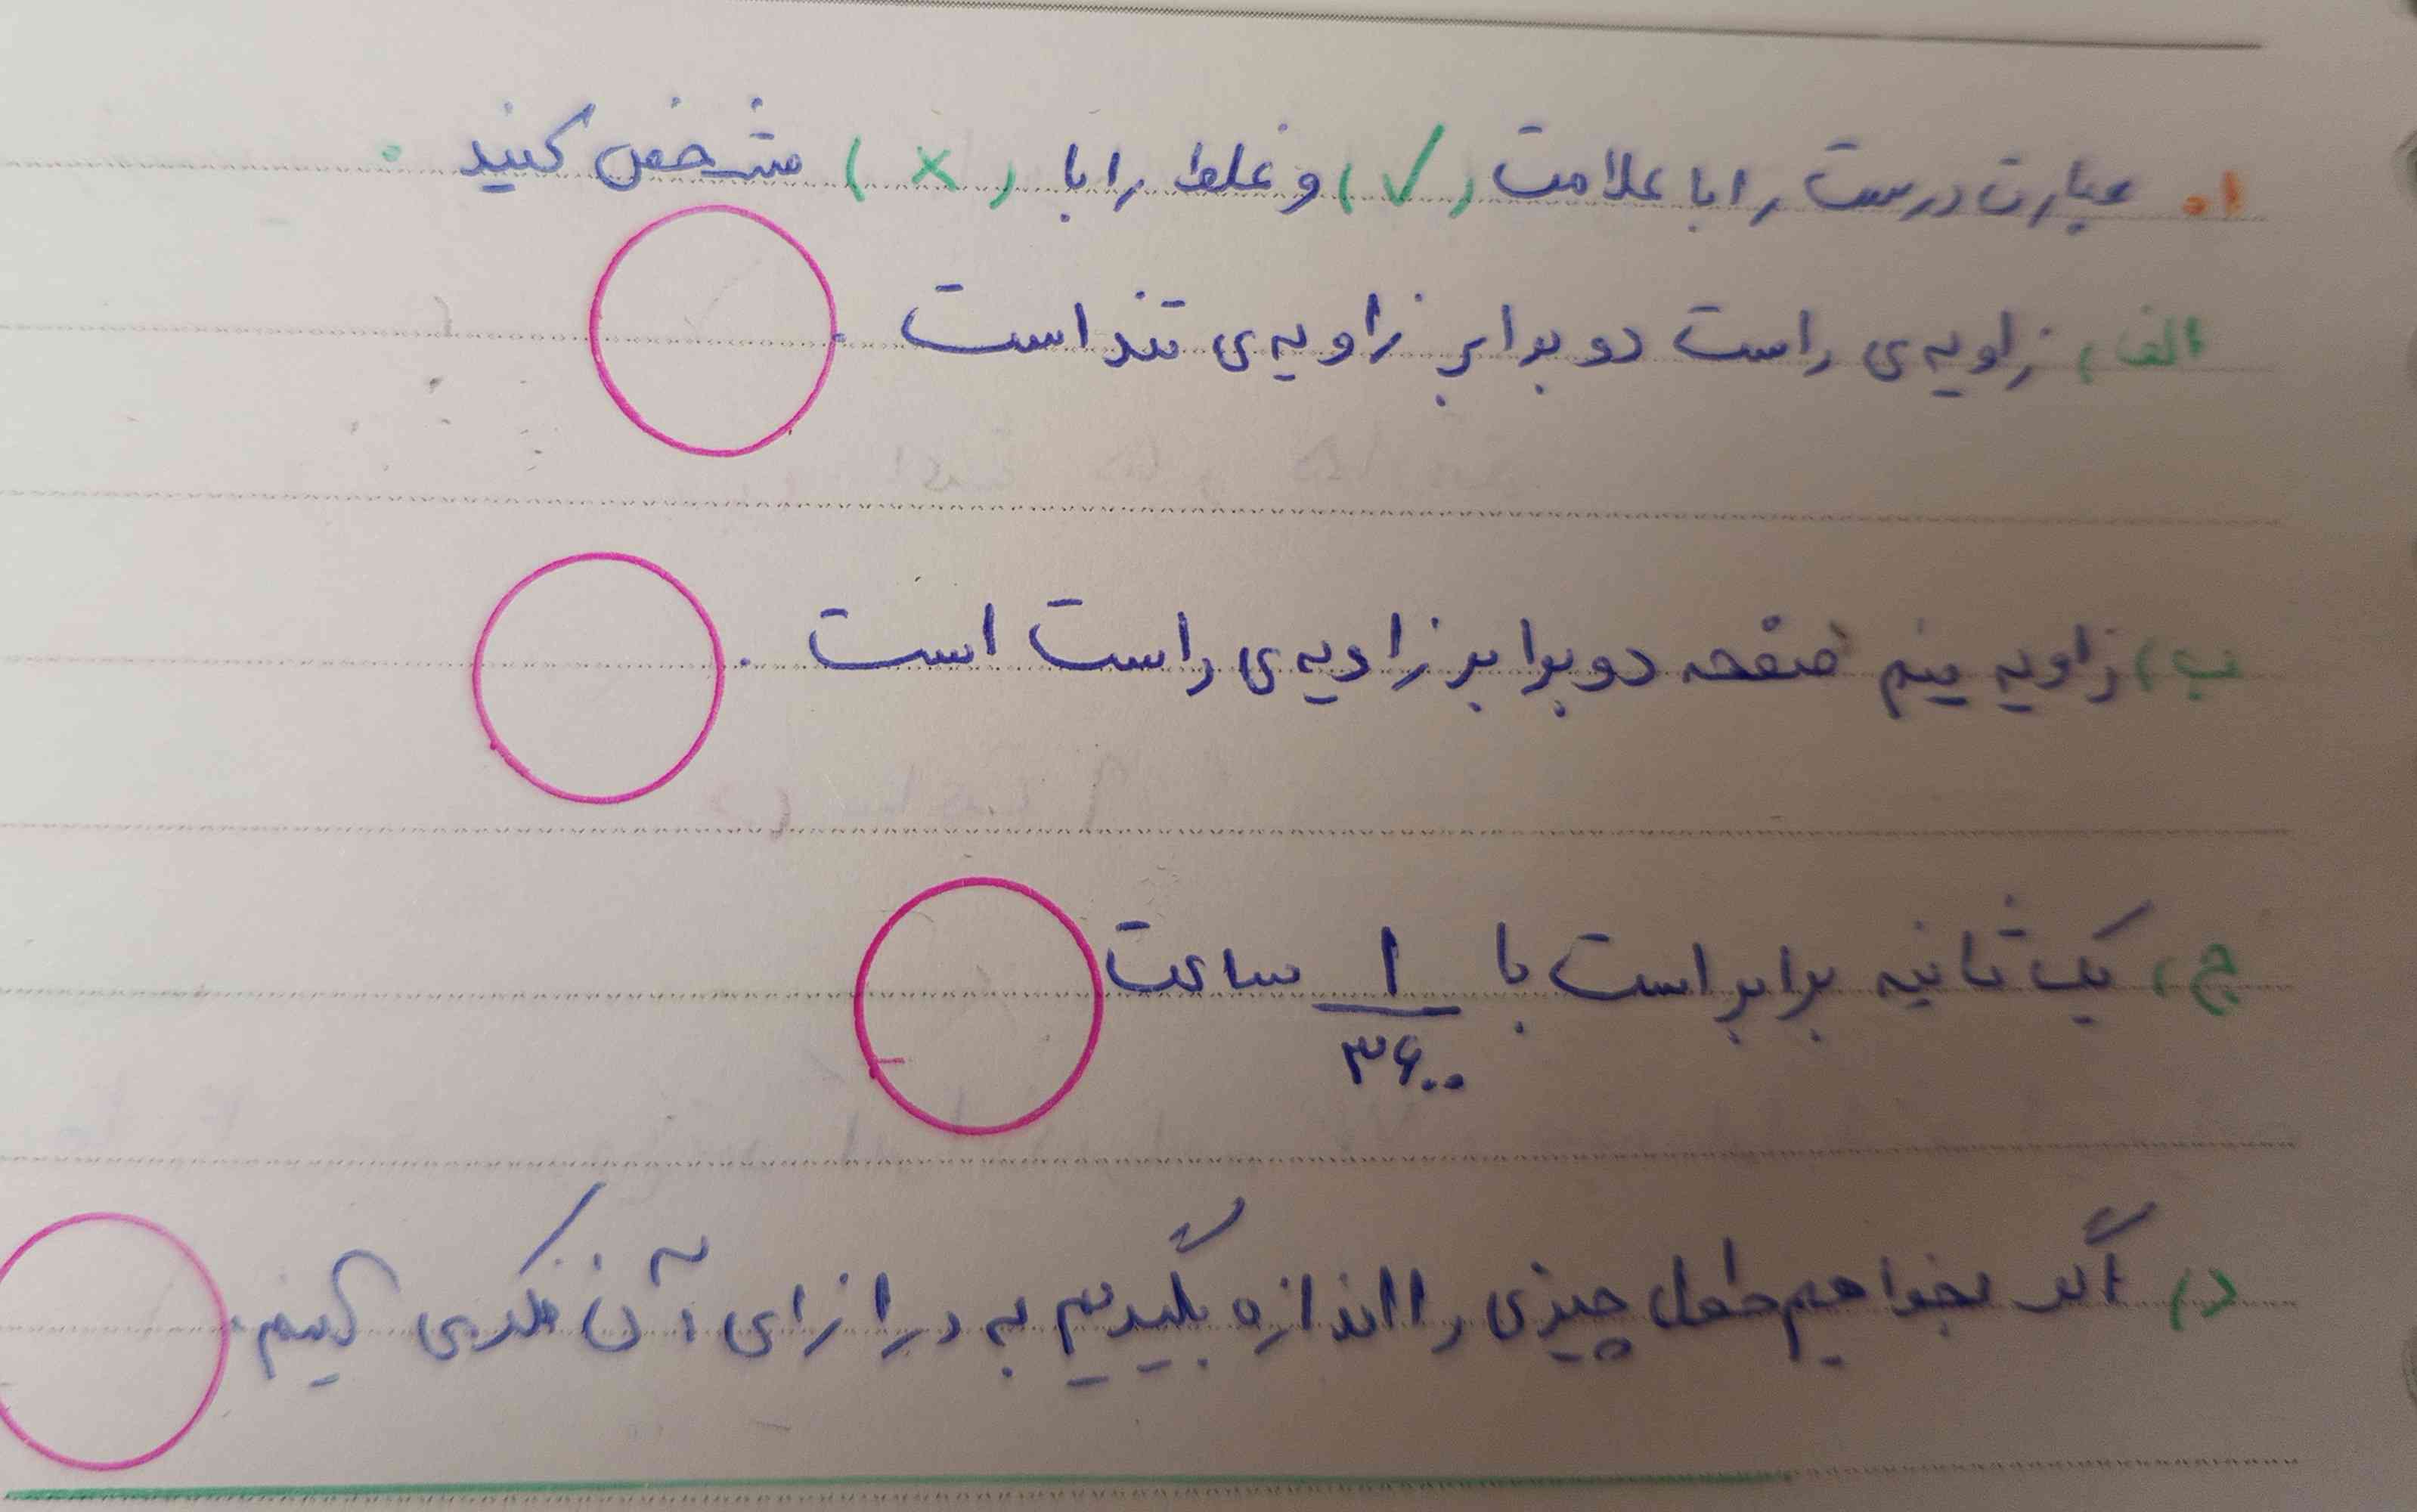 ۱. عبارت درست را با علامت (✓) و غلط را با (×) مشخص کنید.
الف) زاویه‌ی راست دو برابر زاویه‌ی تند است.
ب) زاویه نیم صفحه دو برابر زاویه‌ی راست است.
ج) یک ثانیه برابر است با ۱/۳۶۰۰ ساعت
د) اگر بخواهیم طول چیزی را اندازه بگیریم به درازای آن فکر می کنیم.